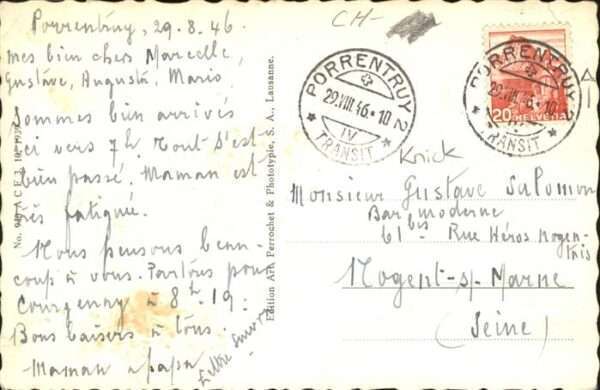 Porrentruy, 29.8.46.
mes bien chers Marcelle,
Gustave, Augusta, Mario
Sommes bien arrivés
ici vers 7h Tout s'est
bien passé. Maman est
très fatiguée.
Nous pensons beau-
coup à vous. Partons pour
Courgenay à 8h 19.
Bons baisers à tous.
Maman Papa
Lettre suivra
Edition Art. Perrochet & Phototypie, S. A., Lausanne.
CH-
PORRENTRUY 2
29.VIII.46-10
IV
TRANSIT
PORRENTRUY 2
29.VIII.46-10
TRANSIT
20 HELVETIA
Knick
Monsieur Gustave Salomon
Bar moderne
61 bis - Rue Héros Nogen-
tais
Nogent-s/-Marne
(Seine)